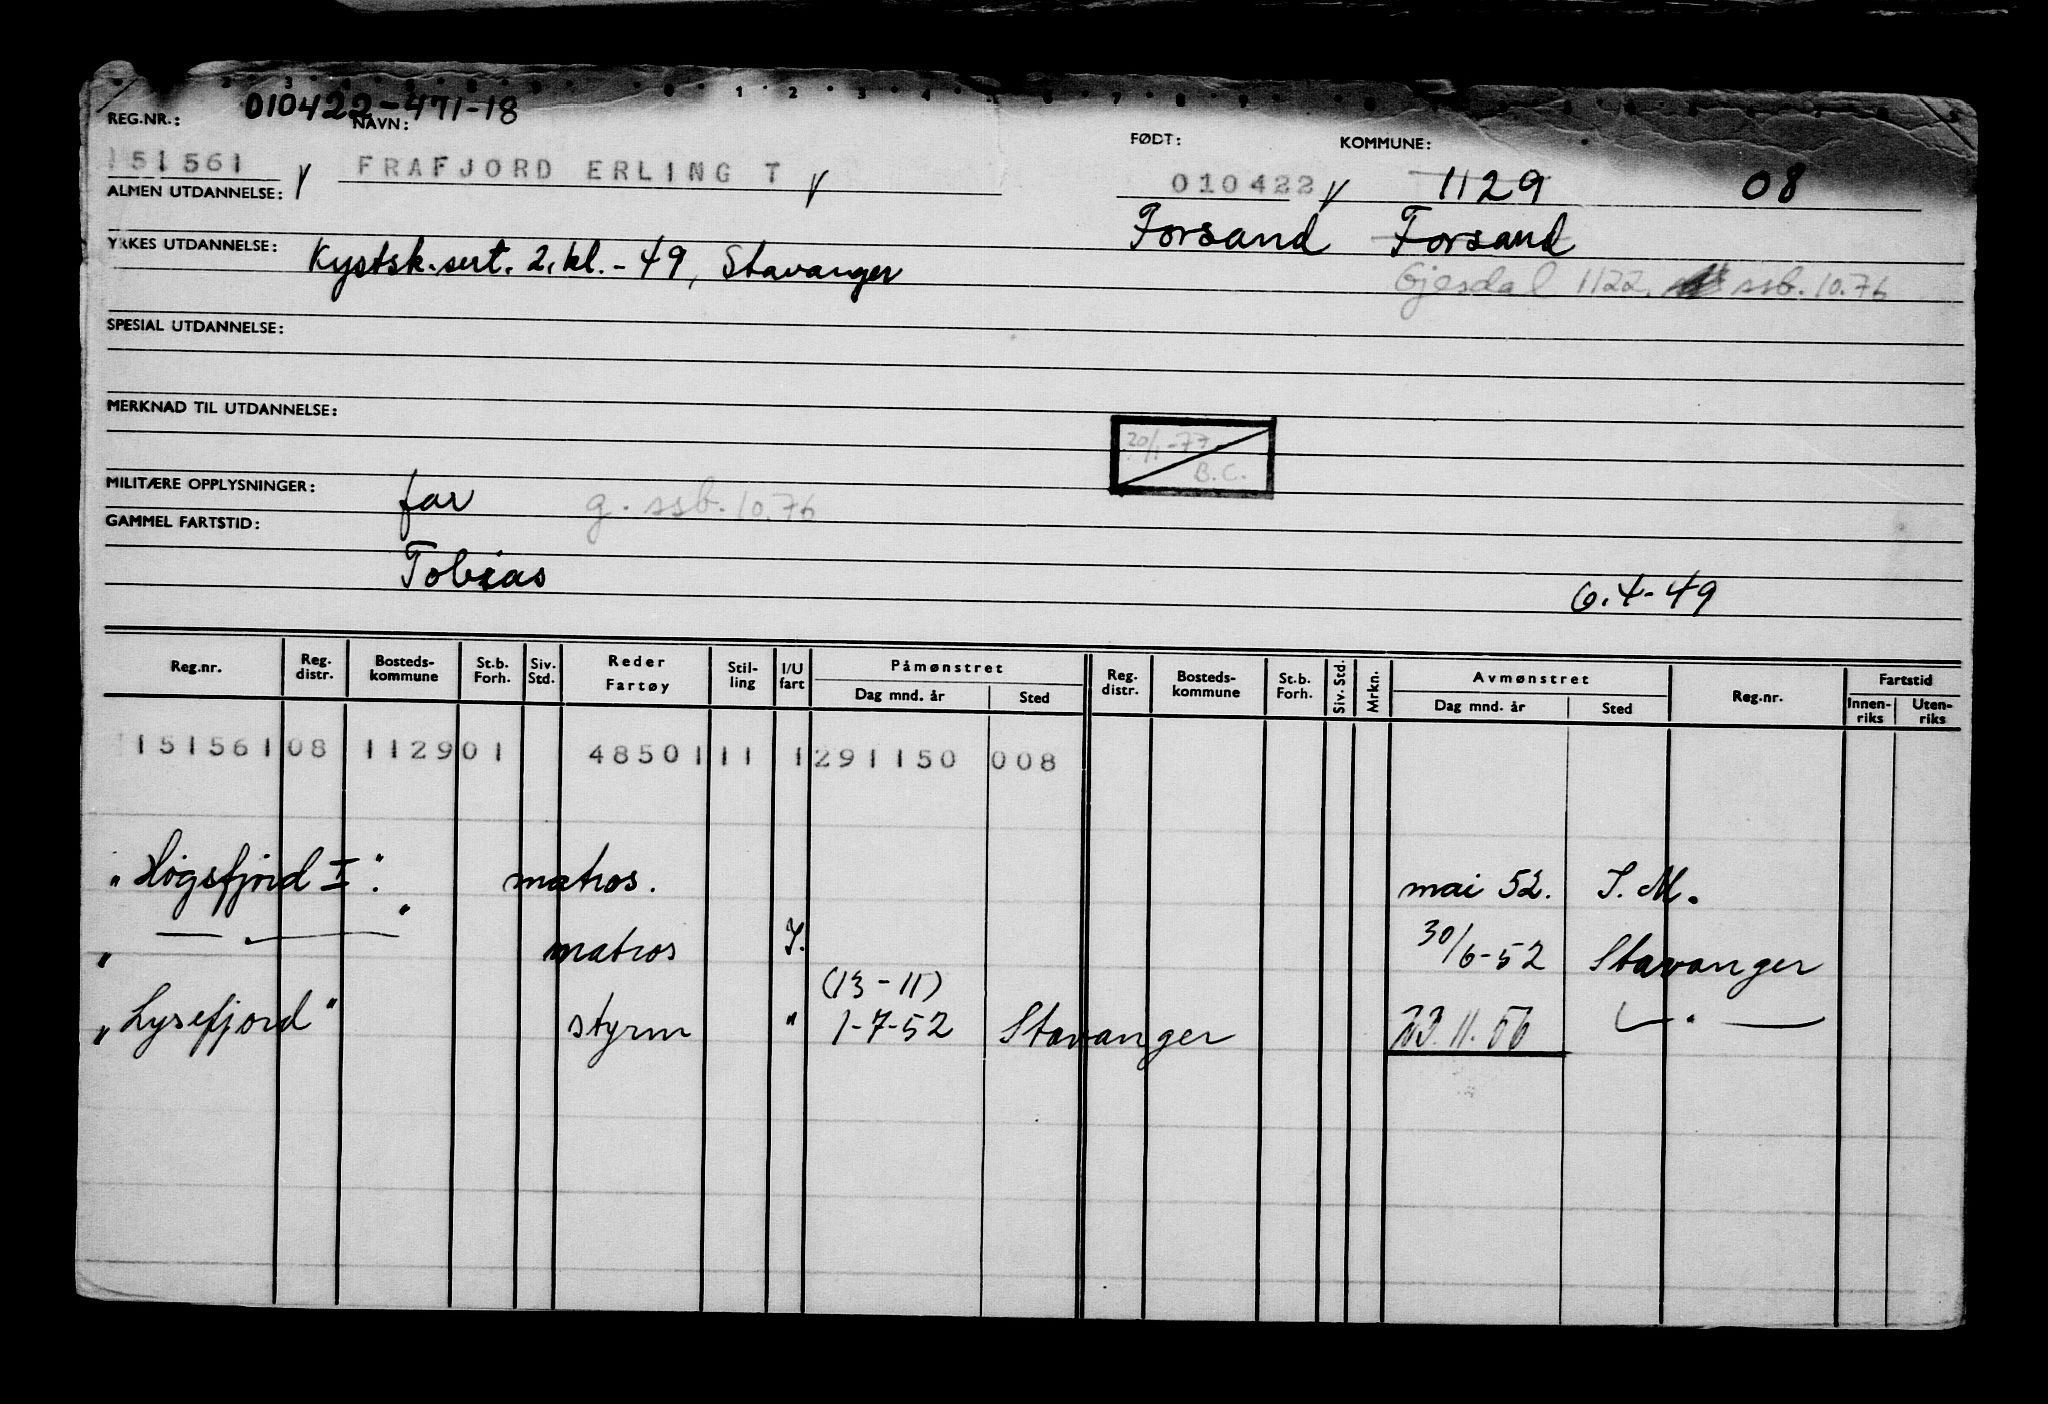 010422-471-18
REG.NR.: NAVN: FØDT: KOMMUNE:
151561 FRAFJORD ERLING T 010422 1129 08
ALMEN UTDANNELSE: Forsand Forsand
YRKES UTDANNELSE: Kystsk.sert. 2.kl. - 49, Stavanger
Gjesdal 1122. ssb. 10.76
SPESIAL UTDANNELSE:
MERKNAD TIL UTDANNELSE:
20/1-77
B.C.
MILITÆRE OPPLYSNINGER: far g. ssb. 10.76
GAMMEL FARTSTID:
Tobias
6.4-49
Reg.nr. Reg. distr. Bosteds-kommune St.b. Forh. Siv. Std. Reder Fartøy Stil-ling I/U fart Påmønstret Dag mnd. år Sted Reg. distr. Bosteds-kommune St.b. Forh. Siv. Std. Mrkn. Avmønstret Dag mnd. år Sted Reg.nr. Fartstid Innen-riks Uten-riks
151561 08 1129 01 48501 11 1 291150 008
"Høgsfjord I". matros. mai 52. S.M.
" — " — " matros I. 30/6-52 Stavanger
(13-11)
"Lysefjord" styrm " 1-7-52 Stavanger 23.11.56 — " —